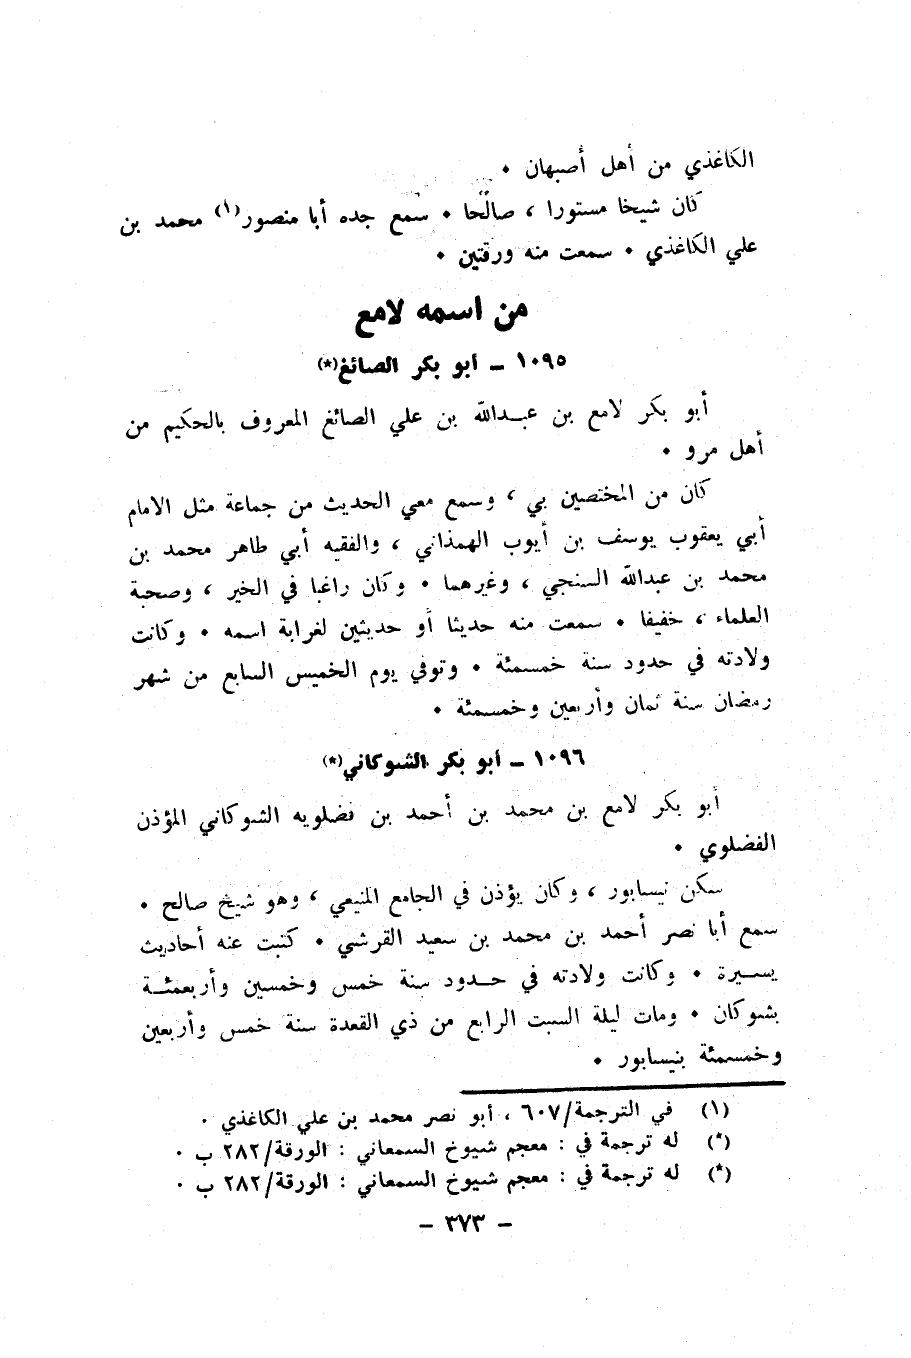 الكاغذي من أهل أصبهان ٠
كان شيخا مستورا ، صالحا ٠ سمع جده أبا منصور(١) محمد بن
علي الكاغذي ٠ سمعت منه ورقتين ٠
من اسمه لامع
١٠٩٥ ــ أبو بكر الصائغ(*)
أبو بكر لامع بن عبـدالله بن علي الصائغ المعروف بالحكيم من
أهل مرو ٠
كان من المختصين بي ، وسمع معي الحديث من جماعة مثل الامام
أبي يعقوب يوسف بن أيوب الهمذاني ، والفقيه أبي طاهر محمد بن
محمد بن عبدالله السنجي ، وغيرهما ٠ وكان راغبا في الخير ، وصحبة
العلماء ، خفيفا ٠ سمعت منه حديثا أو حديثين لغرابة اسمه ٠ وكانت
ولادته في حدود سنة خمسمئة ٠ وتوفي يوم الخميس السابع من شهر
رمضان سنة ثمان وأربعين وخمسمئة ٠
١٠٩٦ ــ أبو بكر الشوكاني(*)
أبو بكر لامع بن محمد بن أحمد بن فضلويه الشوكاني المؤذن
الفضلوي ٠
سكن نيسابور ، وكان يؤذن في الجامع المنيعي ، وهو شيخ صالح ٠
سمع أبا نصر أحمد بن محمد بن سعيد القرشي ٠ كتبت عنه أحاديث
يسـيرة ٠ وكانت ولادته في حـدود سنة خمس وخمسين وأربعمئـة
بشوكان ٠ ومات ليلة السبت الرابع من ذي القعدة سنة خمس وأربعين
وخمسمئة بنيسابور ٠
(١) في الترجمة/٦٠٧ ، أبو نصر محمد بن علي الكاغذي ٠
(*) له ترجمة في : معجم شيوخ السمعاني : الورقة/٢٨٢ ب ٠
(*) له ترجمة في : معجم شيوخ السمعاني : الورقة/٢٨٢ ب ٠
ــ ٣٧٣ ــ